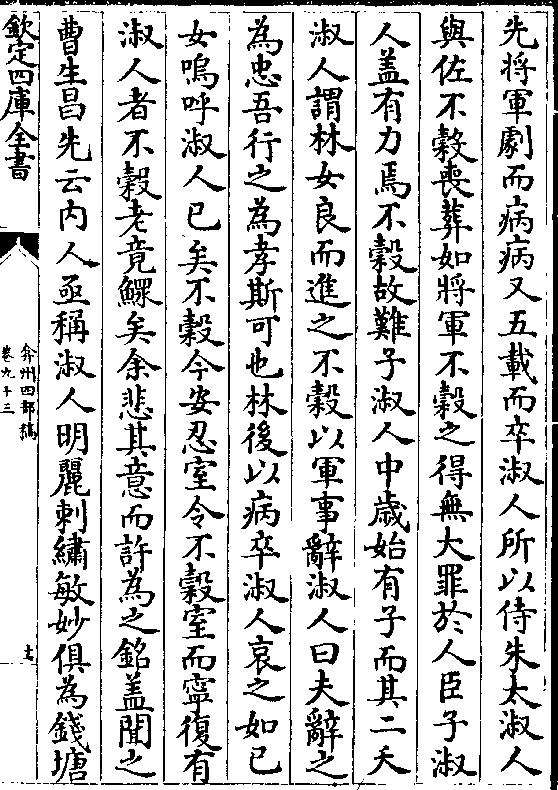 先將軍劇而病病又五載而卒淑人所以侍朱太淑人
與佐不穀喪葬如將軍不穀之得無大罪於人臣子淑
人盖有力焉不穀故難子淑人中歲始有子而其二夭
淑人謂林女良而進之不穀以軍事辭淑人曰夫辭之
為忠吾行之為孝斯可也林後以病卒淑人哀之如已
女嗚呼淑人已矣不穀今安忍室令不穀室而寧復有
淑人者不穀老竟鰥矣余悲其意而許為之銘盖聞之
曹生昌先云内人亟稱淑人明麗刺繡敏妙俱為錢塘
欽定四庫全書
弇州四部稿
卷九十三
十七